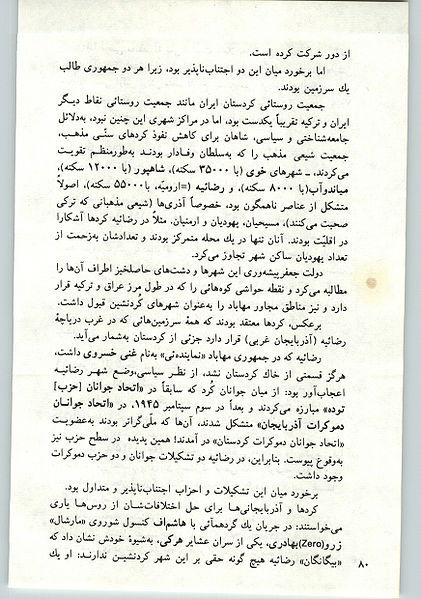 از دور شرکت کرده است.
اما برخورد میان این دو اجتناب‌ناپذیر بود، زیرا هر دو جمهوری طالب
یك سرزمین بودند.
جمعیت روستائی کردستان ایران مانند جمعیت روستائی نقاط دیگر
ایران و ترکیه تقریباً یکدست بود، اما در مراکز شهری این چنین نبود، به‌دلائل
جامعه‌شناختی و سیاسی، شاهان برای کاهش نفوذ کردهای سنّی مذهب،
جمعیت شیعی مذهب را که به‌سلطان وفادار بودند به‌طورمنظم تقویت
می‌کردند. ــ شهرهای خوی (با ۳۵۰۰۰ سکنه)، شاهپور (با ۱۲۰۰۰ سکنه)،
میاندوآب(با ۸۰۰۰ سکنه)، و رضائیه (=ارومیّه، با۵۵۰۰۰ سکنه)، اصولاً
متشکل از عناصر ناهمگون بود، خصوصاً آذری‌ها (شیعی مذهبانی که ترکی
صحبت می‌کنند)، مسیحیان، یهودیان و ارمنیان. مثلاً در رضائیه کردها آشکارا
در اقلیّت بودند. آنان تنها در یك محله متمرکز بودند و تعدادشان به‌زحمت از
تعداد یهودیان ساکن شهر تجاوز می‌کرد.
دولت جعفرپیشه‌وری این شهرها و دشت‌های حاصلخیز اطراف آن‌ها را
مطالبه می‌کرد و نقطه حواشی کوه‌هائی را که در طول مرز عراق و ترکیه قرار
دارد و نیز مناطق مجاور مهاباد را به‌عنوان شهرهای کردنشین قبول داشت.
برعکس، کردها معتقد بودند که همهٔ سرزمین‌هائی که در غرب دریاچهٔ
رضائیه (آذربایجان غربی) قرار دارد جزئی از کردستان به‌شمار می‌آید.
رضائیه که در جمهوری مهاباد «نماینده‌ئی» به‌نام غنی خسروی داشت،
هرگز قسمتی از خاك کردستان نشد، از نظر سیاسی،وضع شهر رضائیـه
اعجاب‌آور بود: از میان جوانان کُرد که سابقاً در «اتحاد جوانان [حزب]
توده» مبارزه می‌کردند و بعداً در سوم سپتامبر ۱۹۴۵، در «اتحاد جوانـان
دموکرات آذربایجان» متشکل شدند، آن‌ها که ملّی‌گراتر بودند به‌عضویـت
«اتحاد جوانان دموکرات کردستان» در آمدند؛ همین پدیده در سطح حزب نیز
به‌وقوع پیوست. بنابراین، در رضائیه دو تشکیلات جوانان و دو حزب دموکرات
وجود داشت.
برخورد میان این تشکیلات و احزاب اجتناب‌ناپذیر و متداول بود.
کردها و آذربایجانی‌ها برای حل اختلافات‌شـان از روس‌ها یاری
می‌خواستند: در جریان یك گردهمآئی با هاشم‌اف کنسول شوروی «مارشال»
زرو(Zero)بهادری، یکی از سران عشایر هرکی، به‌شیوهٔ خودش نشان داد که
«بیگانگان» رضائیه هیچ گونه حقی بر این شهر کردنشین ندارند: او یك
۸۰